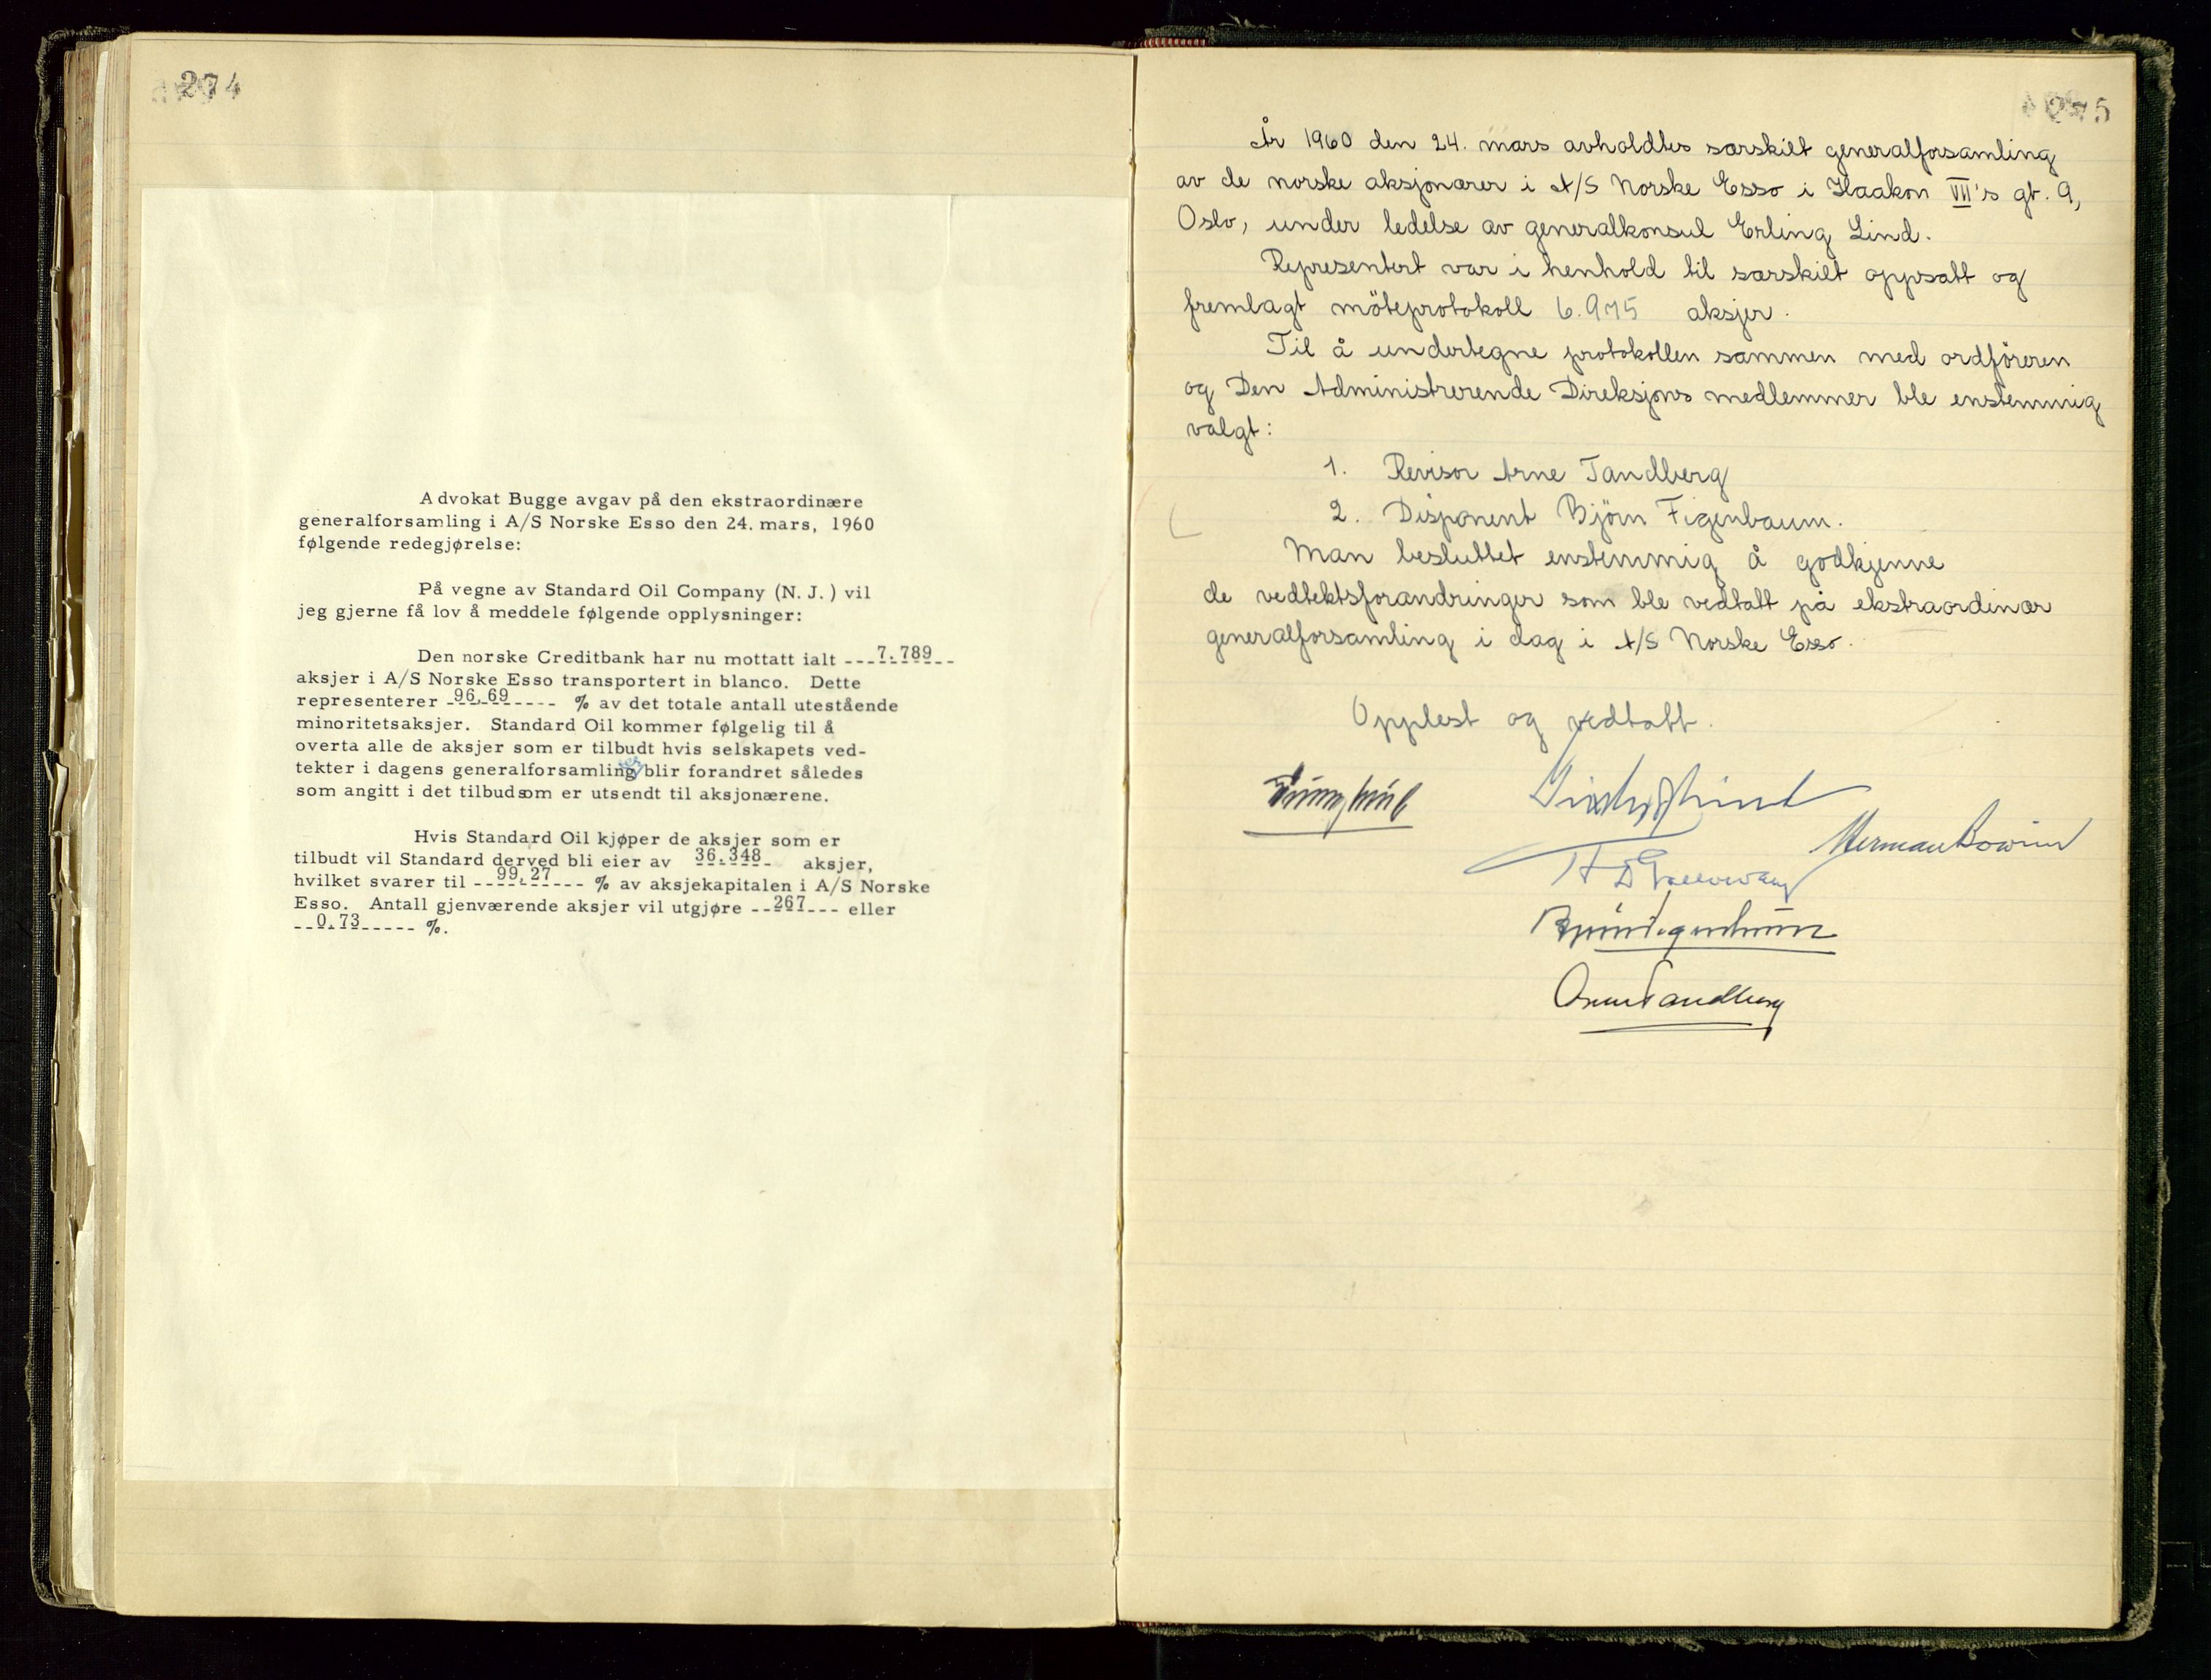 274
Advokat Bugge avgav på den ekstraordinære
generalforsamling i A/S Norske Esso den 24. mars, 1960
følgende redegjørelse:
På vegne av Standard Oil Company (N.J.) vil
jeg gjerne få lov å meddele følgende opplysninger:
Den norske Creditbank har nu mottatt ialt ---7.789---
aksjer i A/S Norske Esso transportert in blanco. Dette
representerer -96,69----- % av det totale antall utestående
minoritetsaksjer. Standard Oil kommer følgelig til å
overta alle de aksjer som er tilbudt hvis selskapets ved-
tekter i dagens generalforsamling blir forandret således
som angitt i det tilbudsom er utsendt til aksjonærene.
Hvis Standard Oil kjøper de aksjer som er
tilbudt vil Standard derved bli eier av 36.348- aksjer,
hvilket svarer til --99,27---- % av aksjekapitalen i A/S Norske
Esso. Antall gjenværende aksjer vil utgjøre --267--- eller
--0,73----- %.
275
År 1960 den 24. mars avholdtes særskilt generalforsamling
av de norske aksjonærer i A/S Norske Esso i Haakon VII's gt. 9,
Oslo, under ledelse av generalkonsul Erling Lind.
Representert var i henhold til særskilt oppsatt og
fremlagt möteprotokoll 6.975 aksjer.
Til å undertegne protokollen sammen med ordföreren
og Den Administrerende Direksjons medlemmer ble enstemmig
valgt:
1. Revisor Arne Tandberg
2. Disponent Björn Figenbaum.
Man besluttet enstemmig å godkjenne
de vedtektsforandringer som ble vedtatt på ekstraordinær
generalforsamling i dag i A/S Norske Esso.
Opplest og vedtatt.
Arne Tandberg